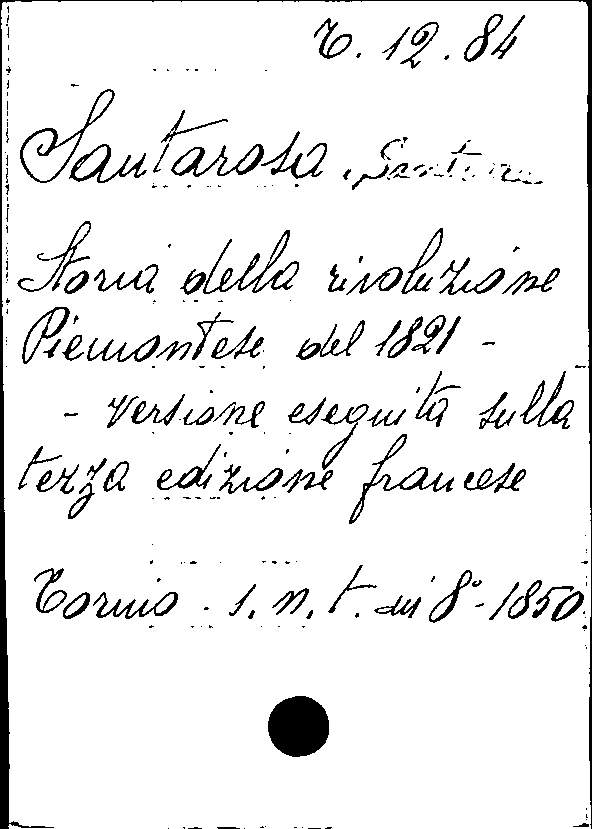 T. 12. 84
Santarosa, Santorre
Storia della rivoluzione
Piemontese del 1821 -
- Versione eseguita sulla
terza edizione francese
Torino . s. n. t. in 8° - 1850